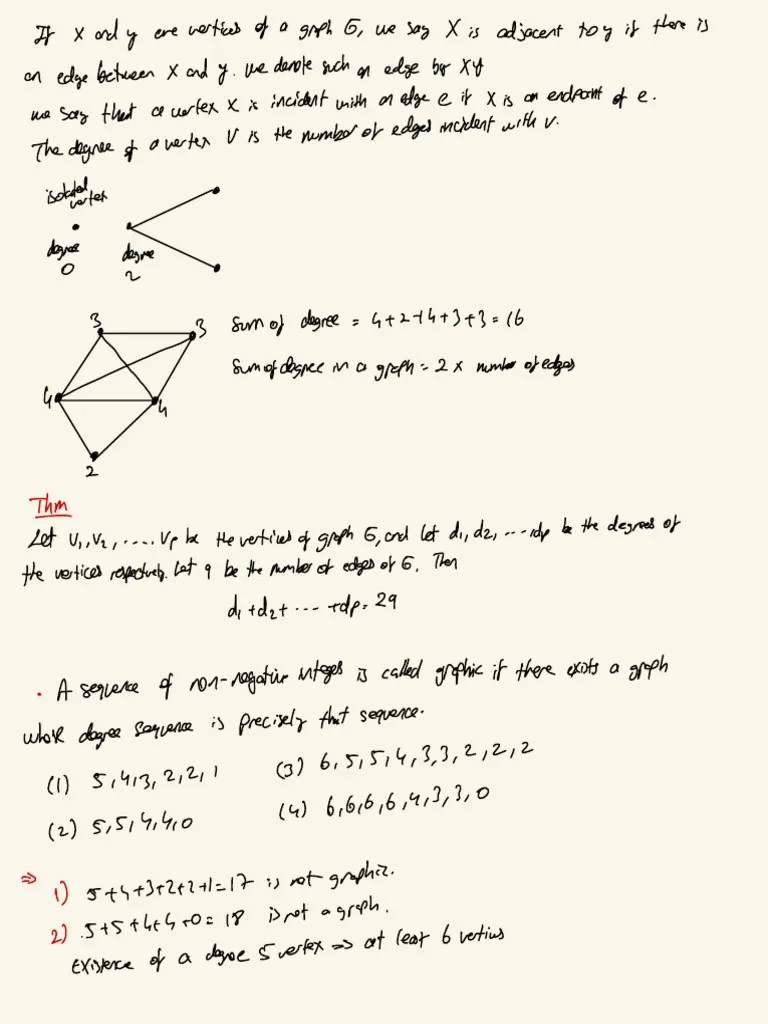 If x and y are vertices of a graph G, we say X is adjacent to y if there is
an edge between x and y. we denote such an edge by xy
we say that a vertex x is incident with an edge e if x is an endpoint of e.
The degree of a vertex V is the number of edges incident with v.
isolated
vertex
degree
0
degree
2
3
3
4
4
2
sum of degree = 4+2+4+3+3=16
sum of degree in a graph = 2 x number of edges
Thm
Let V1, V2, ..... Vp be the vertices of graph G, and let d1, d2, ... dp be the degrees of
the vertices respectively. Let q be the number of edges of G. Then
d1+d2+ ... +dp=2q
• A sequence of non-negative integes is called graphic if there exists a graph
whose degree sequence is precisely that sequence.
(1) 5,4,3,2,2,1
(3) 6,5,5,4,3,3,2,2,2
(2) 5,5,4,4,0
(4) 6,6,6,6,4,3,3,0
⇒ 1) 5+4+3+2+2+1=17 is not graphic.
2) 5+5+4+4+0= 18 is not a graph.
Existence of a degree 5 vertex ⇒ at least 6 vertius